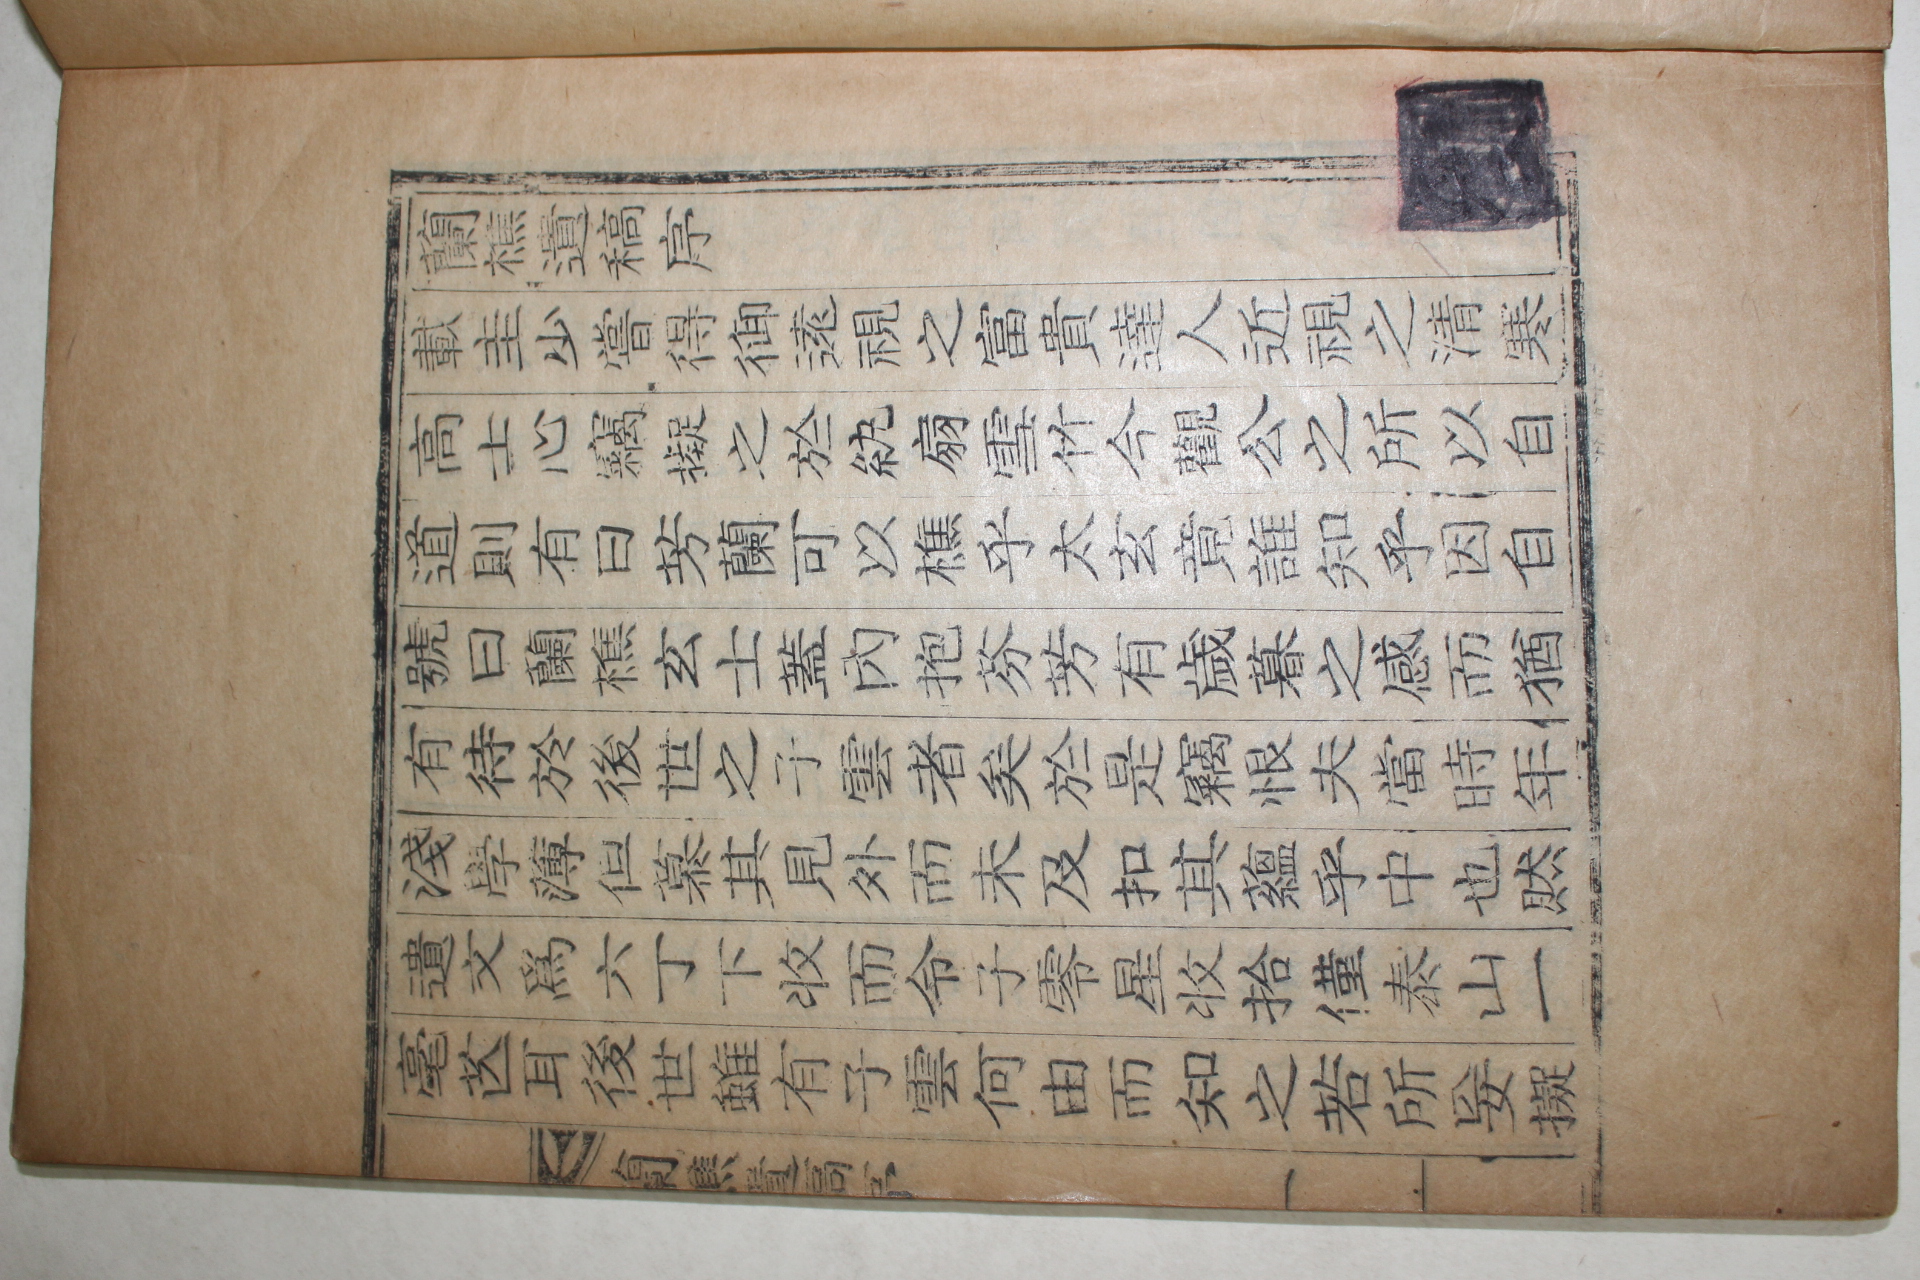 蘭樵遺稿序
載圭少嘗得御遠視之富貴達人近視之清寒
高士心竊擬之於紈扇雪竹今觀公之所以自
道則有曰芳蘭可以樵乎太玄竟誰知乎因自
號曰蘭樵玄士蓋內抱芬芳有歲暮之感而猶
有待於後世之子雲者矣於是竊恨夫當時年
淺學薄但慕其見外而未及扣其蘊乎中也然
遺文爲六丁下收而令子零星收拾僅泰山一
毫芒耳後世雖有子雲何由而知之若所妄擬
蘭樵遺稿序 一